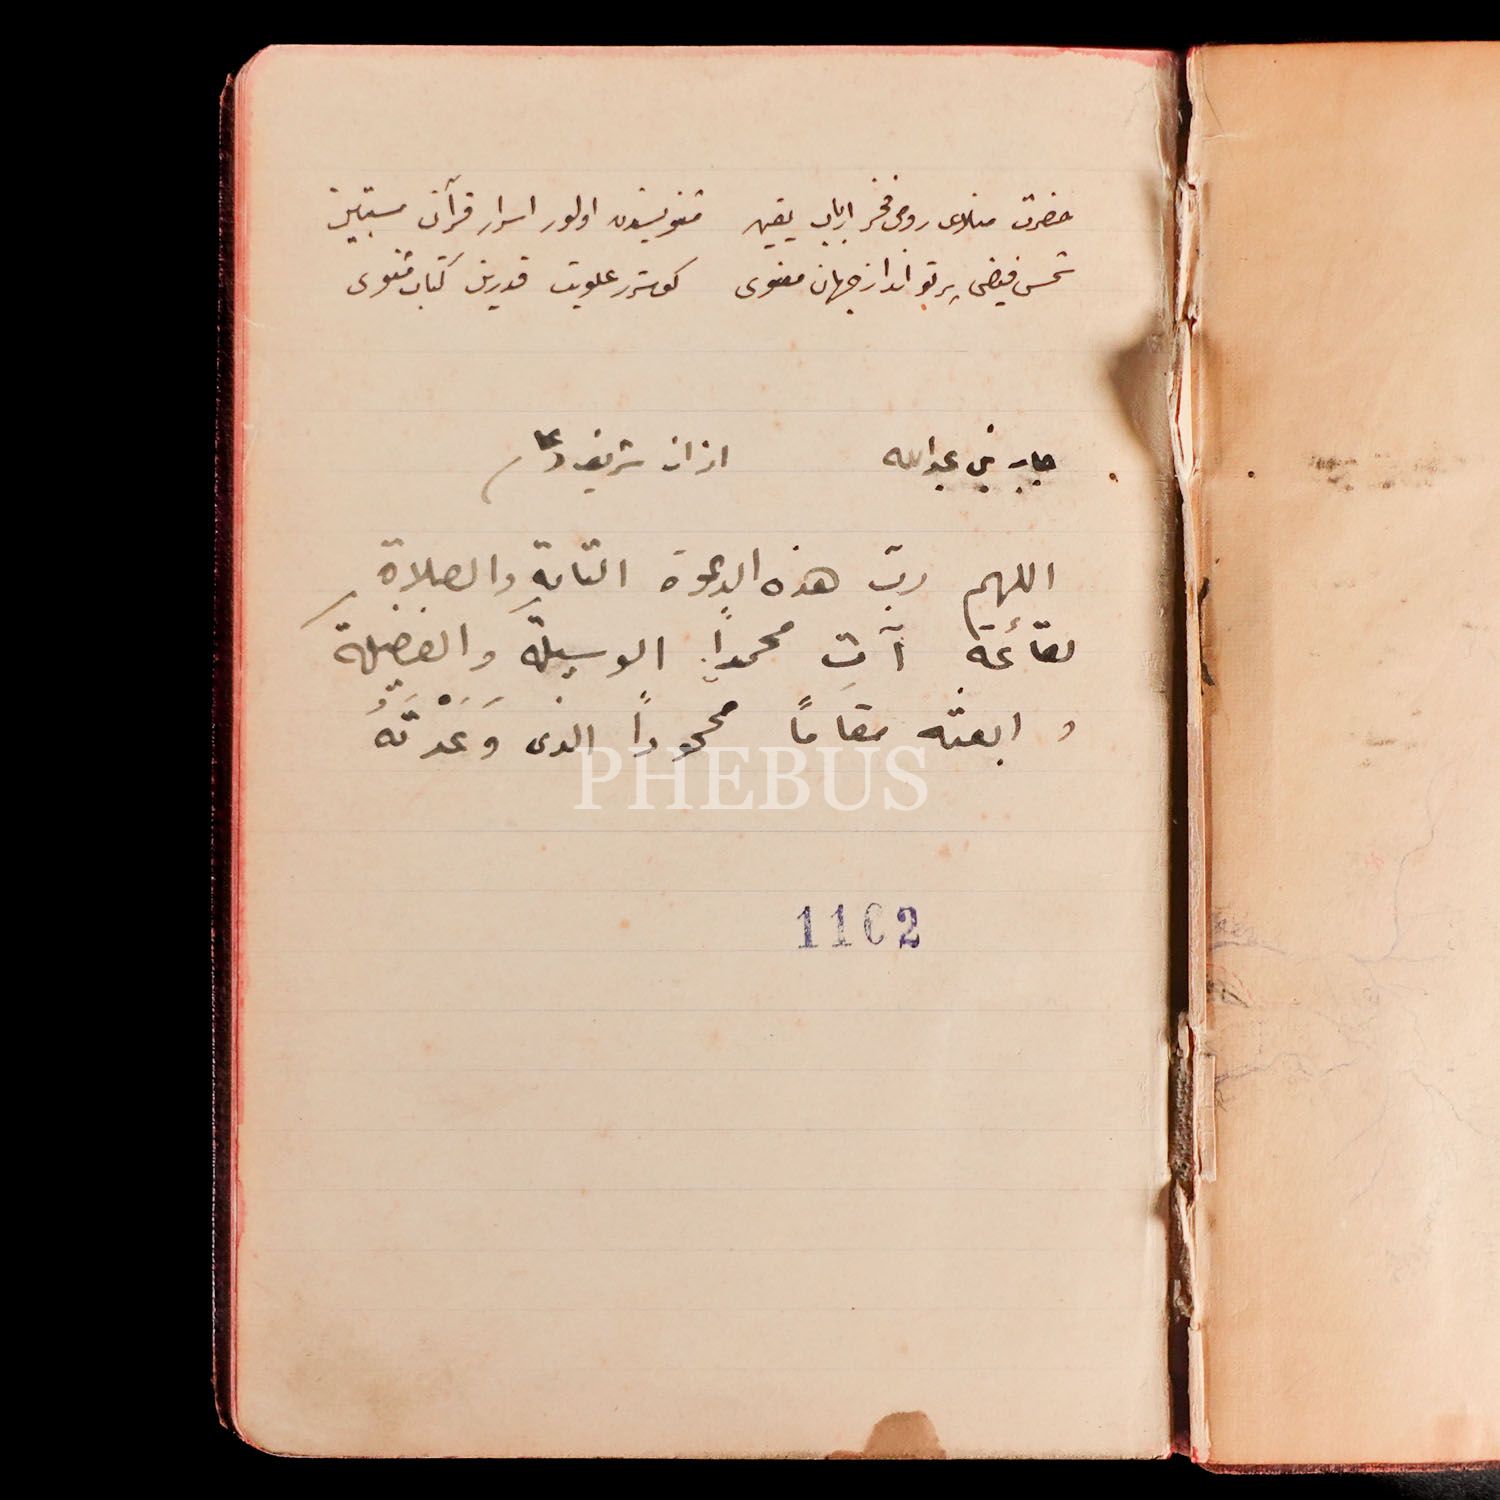 حضرت منلای رومی فخر ارباب یقین مثنویسندن اولور اسرار قرآن مستبین
شمس فیضی پرتو انداز جهان معنوی کوسترر علویت قدرین کتاب مثنوی
جابر بن عبدالله اذان شریف دعا
اللهم ربّ هذه الدعوة التامة والصلاة
لقائمة آتِ محمداً الوسیلةَ والفضیلةَ
و ابعثه مقاماً محموداً الذی وَعَدْتَهُ
PHEBUS
1102